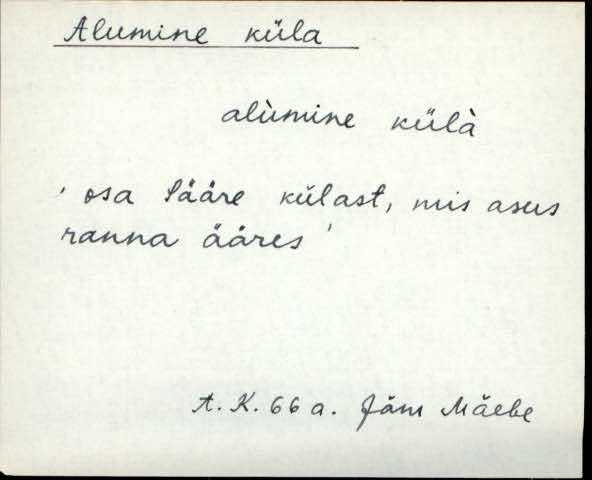 Alumine küla
alùmine külà
' osa Sääre külast, mis asus
ranna ääres '
A. K. 66 a. Jäm Mäebe